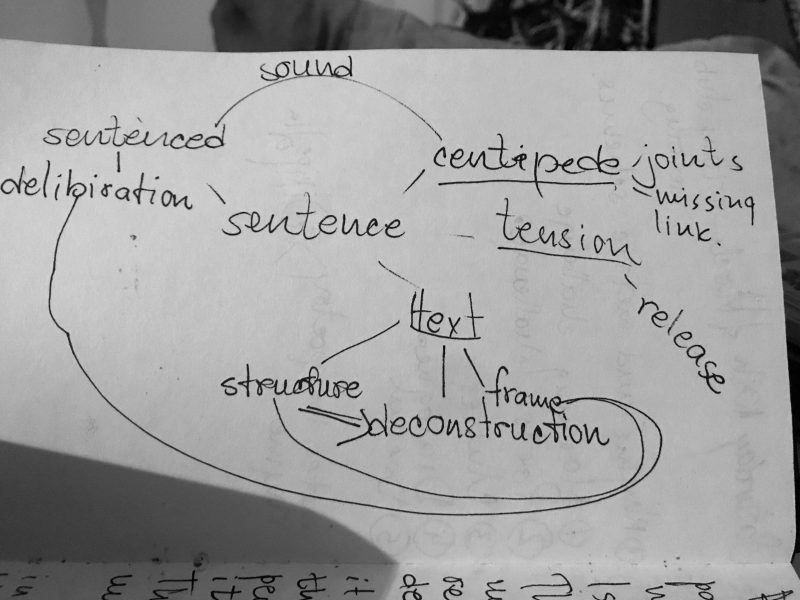 sound
sentenced
delibiration
centipede
joints
missing
link.
sentence
tension
release
text
structure
frame
deconstruction